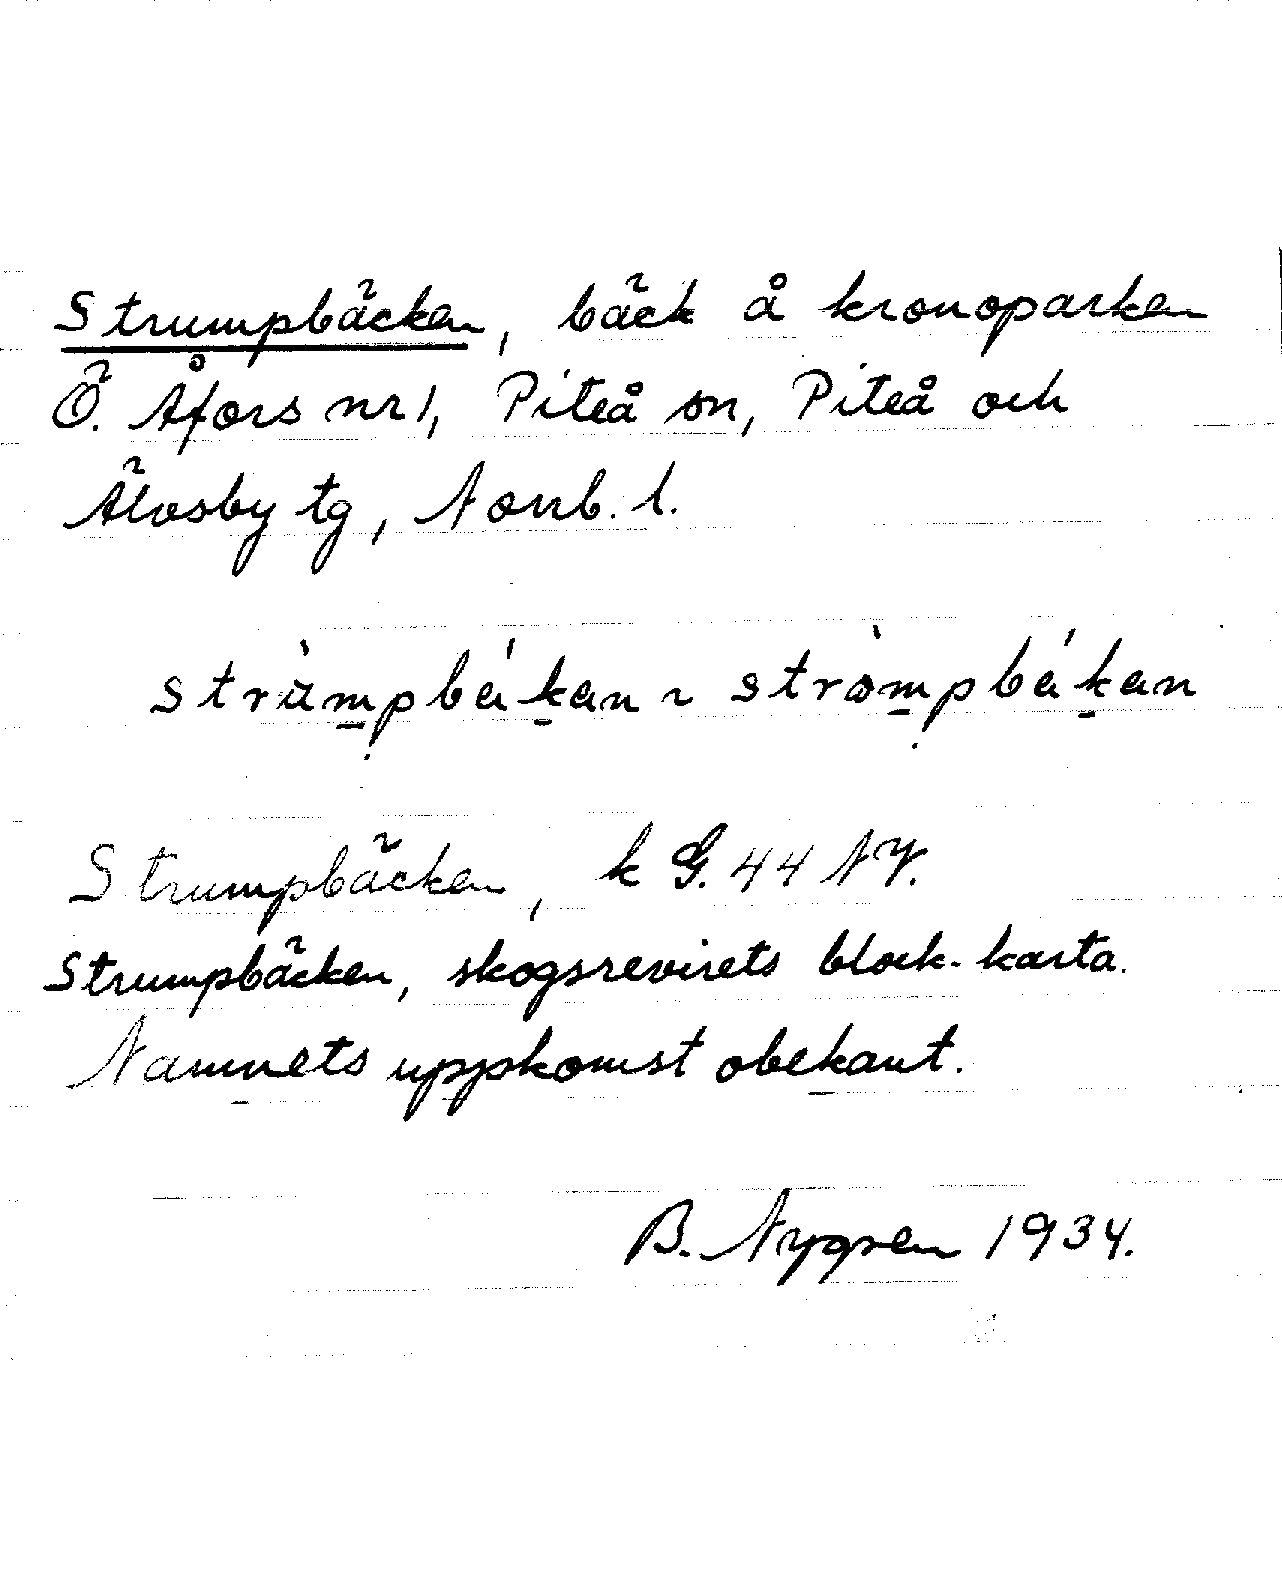 Strumpbäcken, bäck å kronoparken
Ö. Åfors nr 1, Piteå sn, Piteå och
Älvsby tg, Norrb. l.
Strumpbäcken, k G. 44 NY.
Strumpbäcken, skogsrevirets block-karta.
Namnets uppkomst obekant.
B. Nygren 1934.